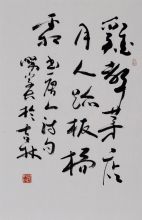 雞聲茅店
月人跡板橋
霜
書唐人詩句
於吉林